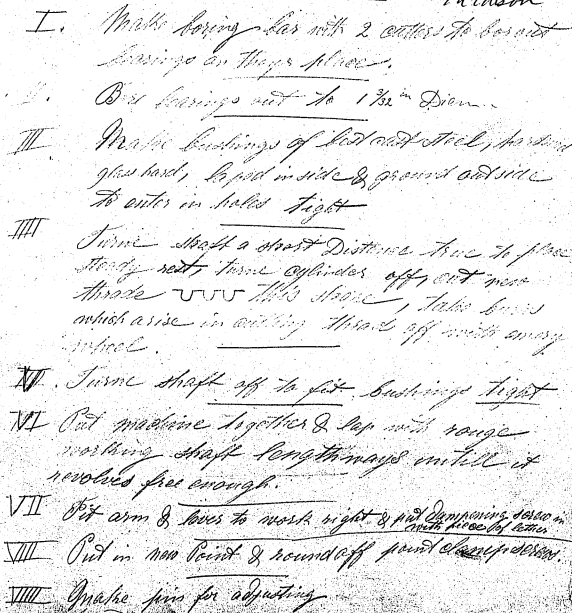 I. Make boring bar with 2 cutters to bore out
bearings on place.
II. Bore bearings out to 1 3/32 in Diam.
III Make bushings of best cast steel, harden
glass hard, laped inside & ground outside
to enter in holes tight
IIII Turne shaft a short Distance true to place
steady rest, turne cylinder off, cut new
thrade this shape, take burrs
which arise in cutting thread off with emery
wheel.
V. Turne shaft off to fit bushings tight
VI Put machine together & lap with rouge
working shaft lengthways untill it
revolves free enough.
VII Fit arm & lever to work right & put dampening screw in
with piece of
VIII Put in new Point & round off point clamp screws.
VIIII Make pin for adjusting